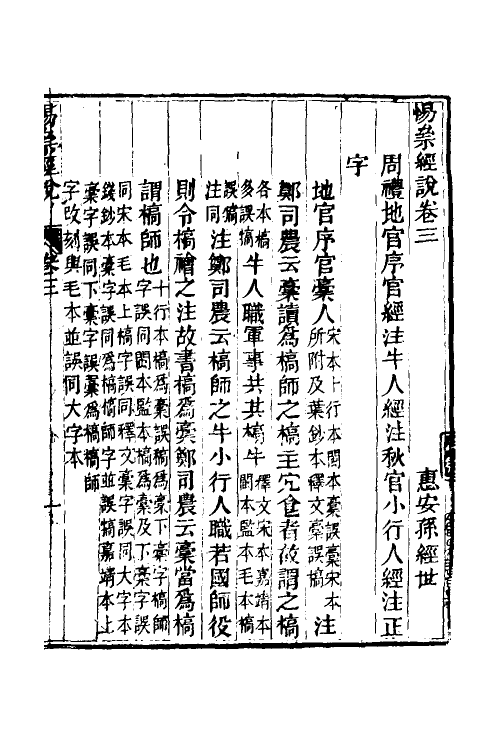 惕㮚經說卷三
惠安孫經世
周禮地官序官經注牛人經注秋官小行人經注正
字
地官序官槀人宋本十行本閩本槀誤藁宋本所附及葉鈔本釋文槀誤槁注
鄭司農云槀讀爲槁師之槁主宂食者故謂之槁
各本槁多誤犒牛人職軍事共其槁牛釋文宋本嘉靖本閩本監本毛本槁
誤犒注同注鄭司農云槁師之牛小行人職若國師役
則令槁禬之注故書槁爲槀鄭司農云槀當爲槁
謂槁師也十行本槁爲槀誤犒下槀字槁師字誤同閩本監本槁爲槀及下槀字誤
同宋本毛本上槁字誤同釋文槀字誤同大字本錢鈔本槀字誤同爲槁槁師字並誤犒嘉靖本上
槀字誤同下槀字誤藁爲槁槁師字改刻與毛本並誤同大字本
惕㮚經說
卷三